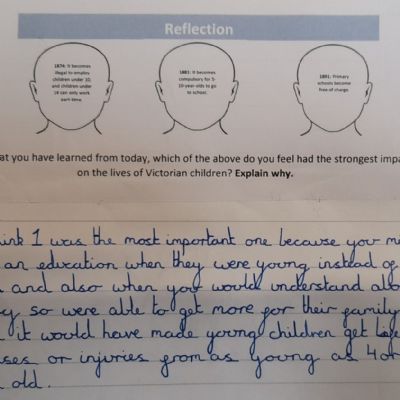 Reflection
1874: It becomes
illegal to employ
children under 10;
and children under
14 can only work
part-time.
1881: It becomes
compulsory for 5-
10-year-olds to go
to school.
1891: Primary
schools become
free of charge.
at you have learned from today, which of the above do you feel had the strongest impa
on the lives of Victorian children? Explain why.
ink 1 was the most important one because you m
an education when they were young instead of
and also when you would understand abo
so were able to get more for their family
it would have made young children get
ses or injuries from as young as 4 or
old.